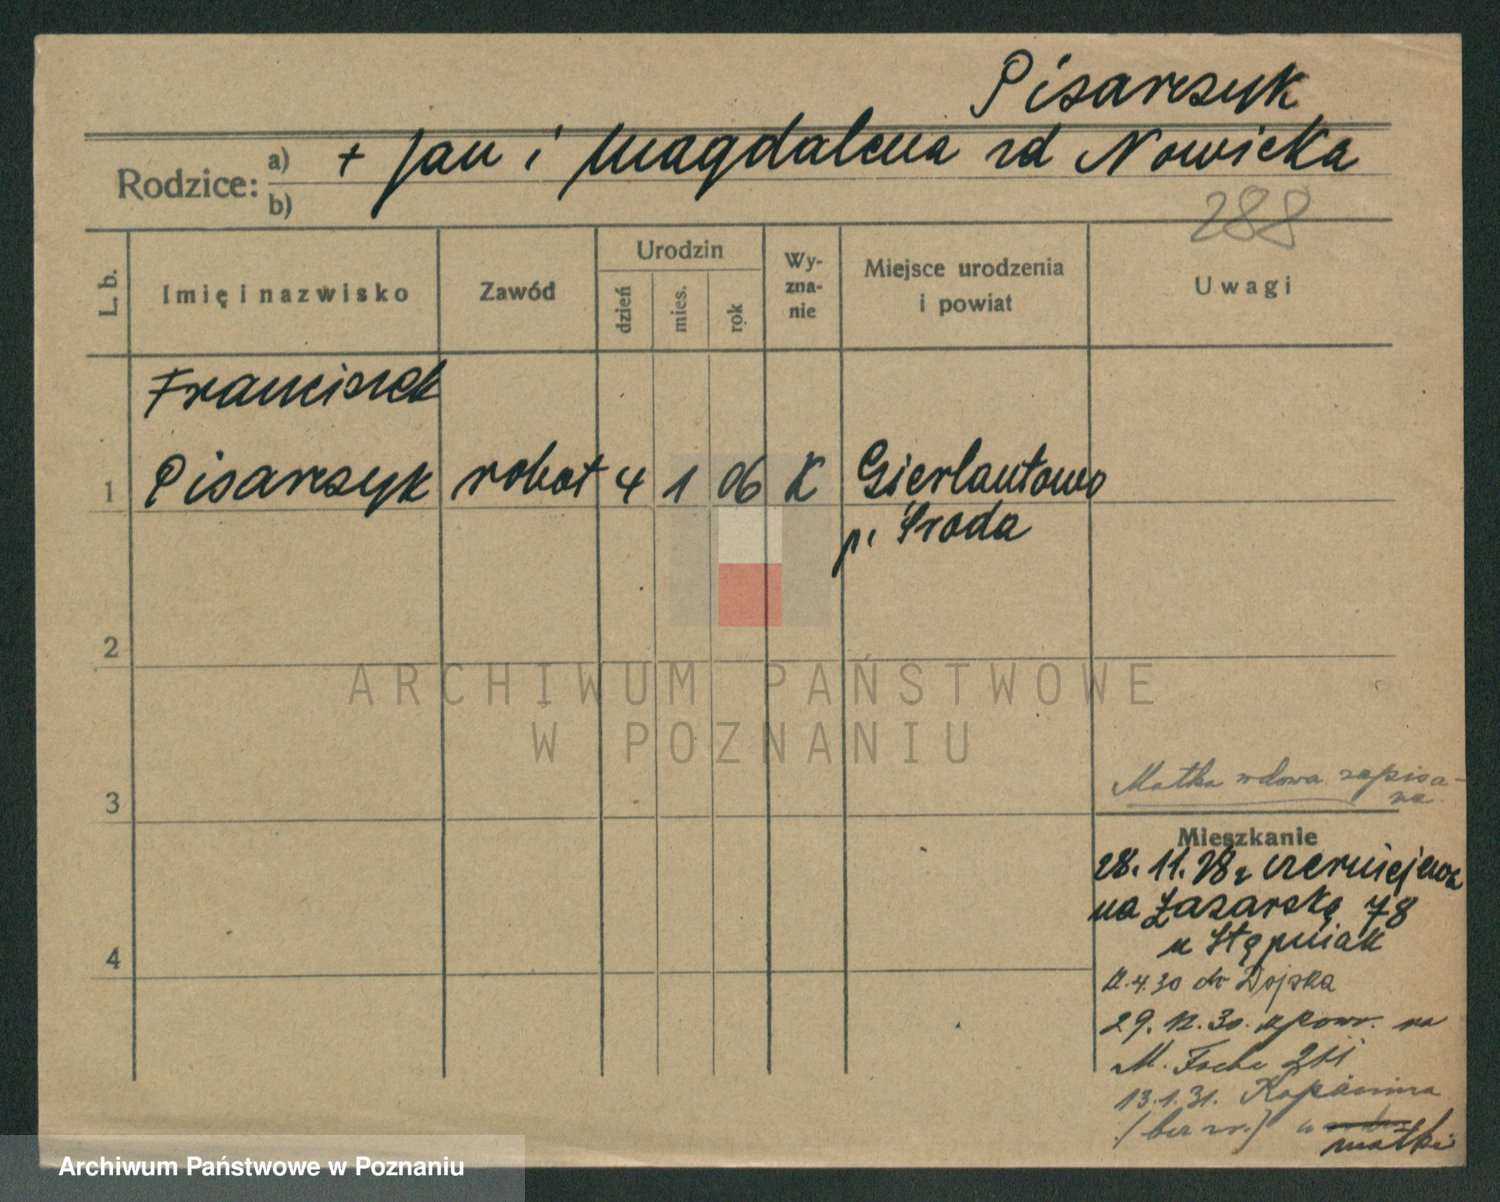 Pisarczyk
Rodzice: a) + Jan i Magdalena zd Nowicka
b)
288
L. b.
Imię i nazwisko
Zawód
Urodzin
dzień
mies.
rok
Wy-
zna-
nie
Miejsce urodzenia
i powiat
Uwagi
Franciszek
1 Pisarczyk robot 4 1 06 K Gierlautowo
p. Środa
2
ARCHIWUM PAŃSTWOWE
W POZNANIU
3
Matka wdowa zapisa-
na
Mieszkanie
28. 11. 28 z Czerniejewa
na Łazarską 78
u Stępniak
4.30 do Wojska
29. 12. 30. z powr. na
M. Focha
13.1.31. Kopanina
(bez nr.) u
matki
4
Archiwum Państwowe w Poznaniu